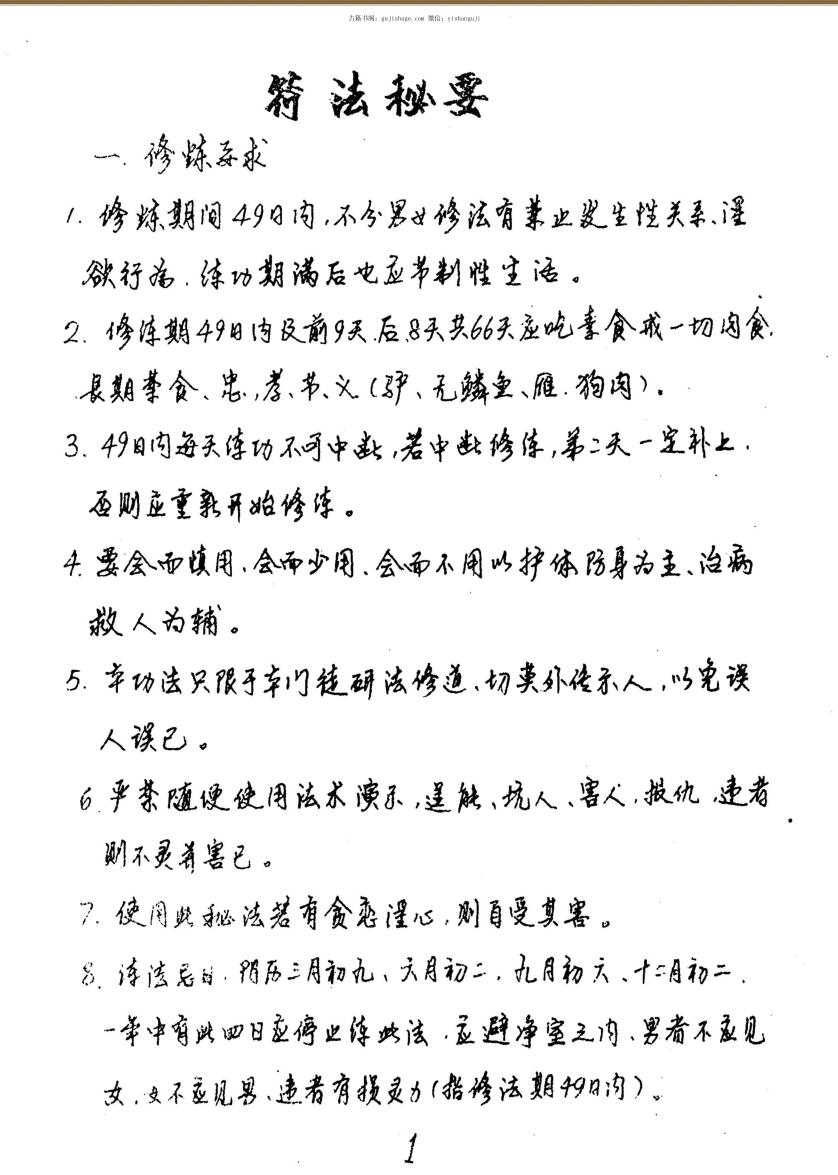 古籍书阁：gujishuge.com 微信：yishanguji
符法秘要
一．修炼要求
1. 修炼期间49日内，不分男女修法有禁止发生性关系、淫
欲行为．练功期满后也应节制性生活。
2. 修练期49日内及前9天．后8天共66天应吃素食戒一切肉食．
長期禁食、忠，孝、节、义（驴、无鳞鱼、雁．狗肉）。
3. 49日内每天练功不可中断，若中断修练，第二天一定补上．
否则应重新开始修练。
4. 要会而慎用、会而少用、会而不用以护体防身为主、治病
救人为辅。
5. 本功法只限于本门徒研法修道、切莫外传示人，以免误
人误己。
6. 严禁随便使用法术演示，逞能、坑人、害人，报仇，违者
则不灵并害己。
7. 使用此秘法若有贪恋淫心，则自受其害。
8. 练法忌日．阴历三月初九、六月初二．九月初六、十二月初二．
一年中有此四日应停止练此法．应避净室之内、男者不应见
女．女不应见男、违者有损灵力（指修法期49日内）。
1